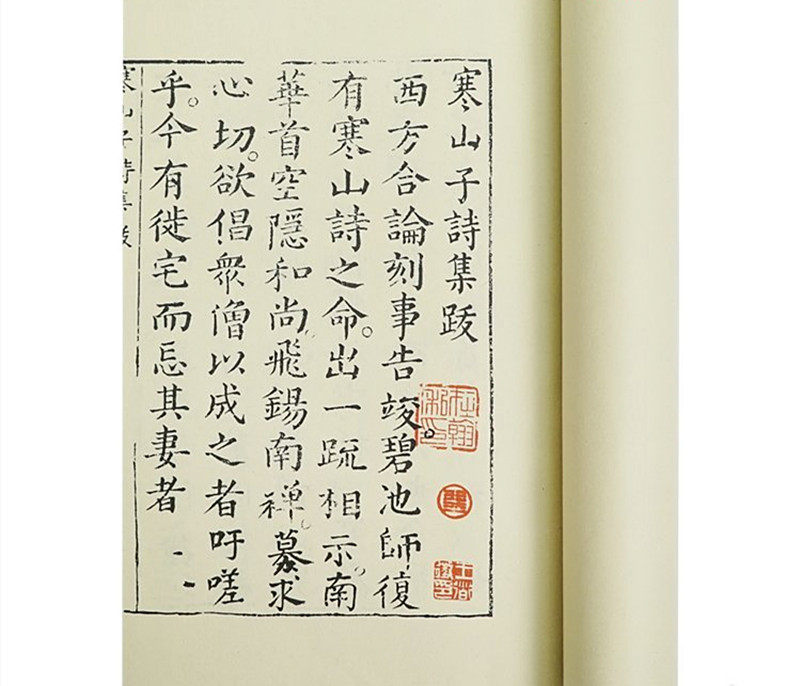 寒山子詩集跋
西方合論刻事告竣。碧池師復
有寒山詩之命。出一疏相示。南
華首空隱和尚。飛錫南禅。募求
心切。欲倡衆僧以成之者吁嗟
乎。今有徙宅而忘其妻者
寒山子詩集跋